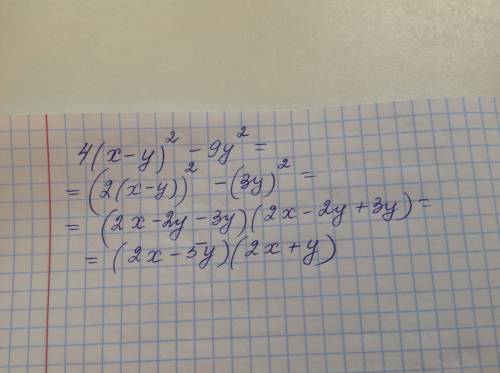 4(x-y)² - 9y² =
= (2(x-y))² - (3y)² =
= (2x-2y-3y)(2x-2y+3y) =
= (2x-5y)(2x+y)